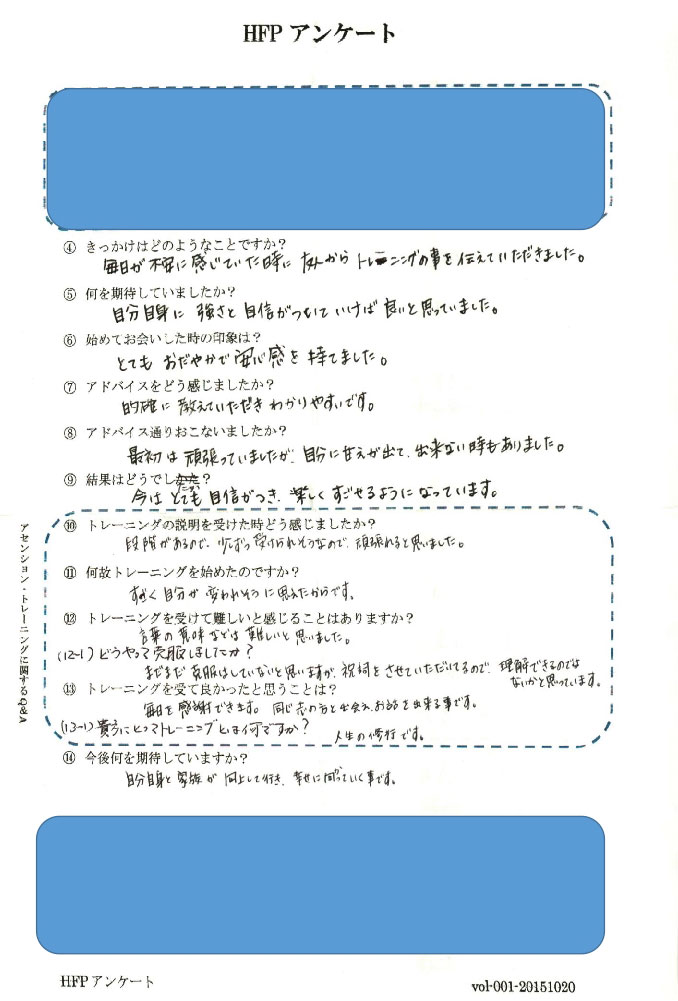 HFP アンケート
④ きっかけはどのようなことですか？
毎日が不安に感じていた時に 友人から トレーニングの事を伝えていただきました。
⑤ 何を期待していましたか？
自分自身に 強さと自信がついていけば 良いと思っていました。
⑥ 始めてお会いした時の印象は？
とても おだやかで 安心感を 持てました。
⑦ アドバイスをどう感じましたか？
的確に 教えていただき わかりやすいです。
⑧ アドバイス通りおこないましたか？
最初は 頑張っていましたが、自分に甘えが出て、出来ない時もありました。
⑨ 結果はどうでしたか？
今は とても 自信がつき、楽しく すごせるように なっています。
アセンション・トレーニングに関するQ&A
⑩ トレーニングの説明を受けた時どう感じましたか？
段階があるので、少しずつ 受けられそうなので、頑張れると思いました。
⑪ 何故トレーニングを始めたのですか？
すごく 自分が 変われそうに 思えたからです。
⑫ トレーニングを受けて難しいと感じることはありますか？
言葉の 意味などは 難しいと 思いました。
(12-1) どうやって克服しましたか？
まだまだ 克服はしていないと思いますが、祝詞をさせていただいてるので、理解できるのでは
ないかと思っています。
⑬ トレーニングを受て良かったと思うことは？
毎日を感謝できます。 同じ志の方と出会え、お話を出来る事です。
(13-1) 貴方にとってトレーニングとは何ですか？
人生の修行です。
⑭ 今後何を期待していますか？
自分自身と 家族が 向上して行き、幸せに向っていく事です。
HFP アンケート
vol-001-20151020